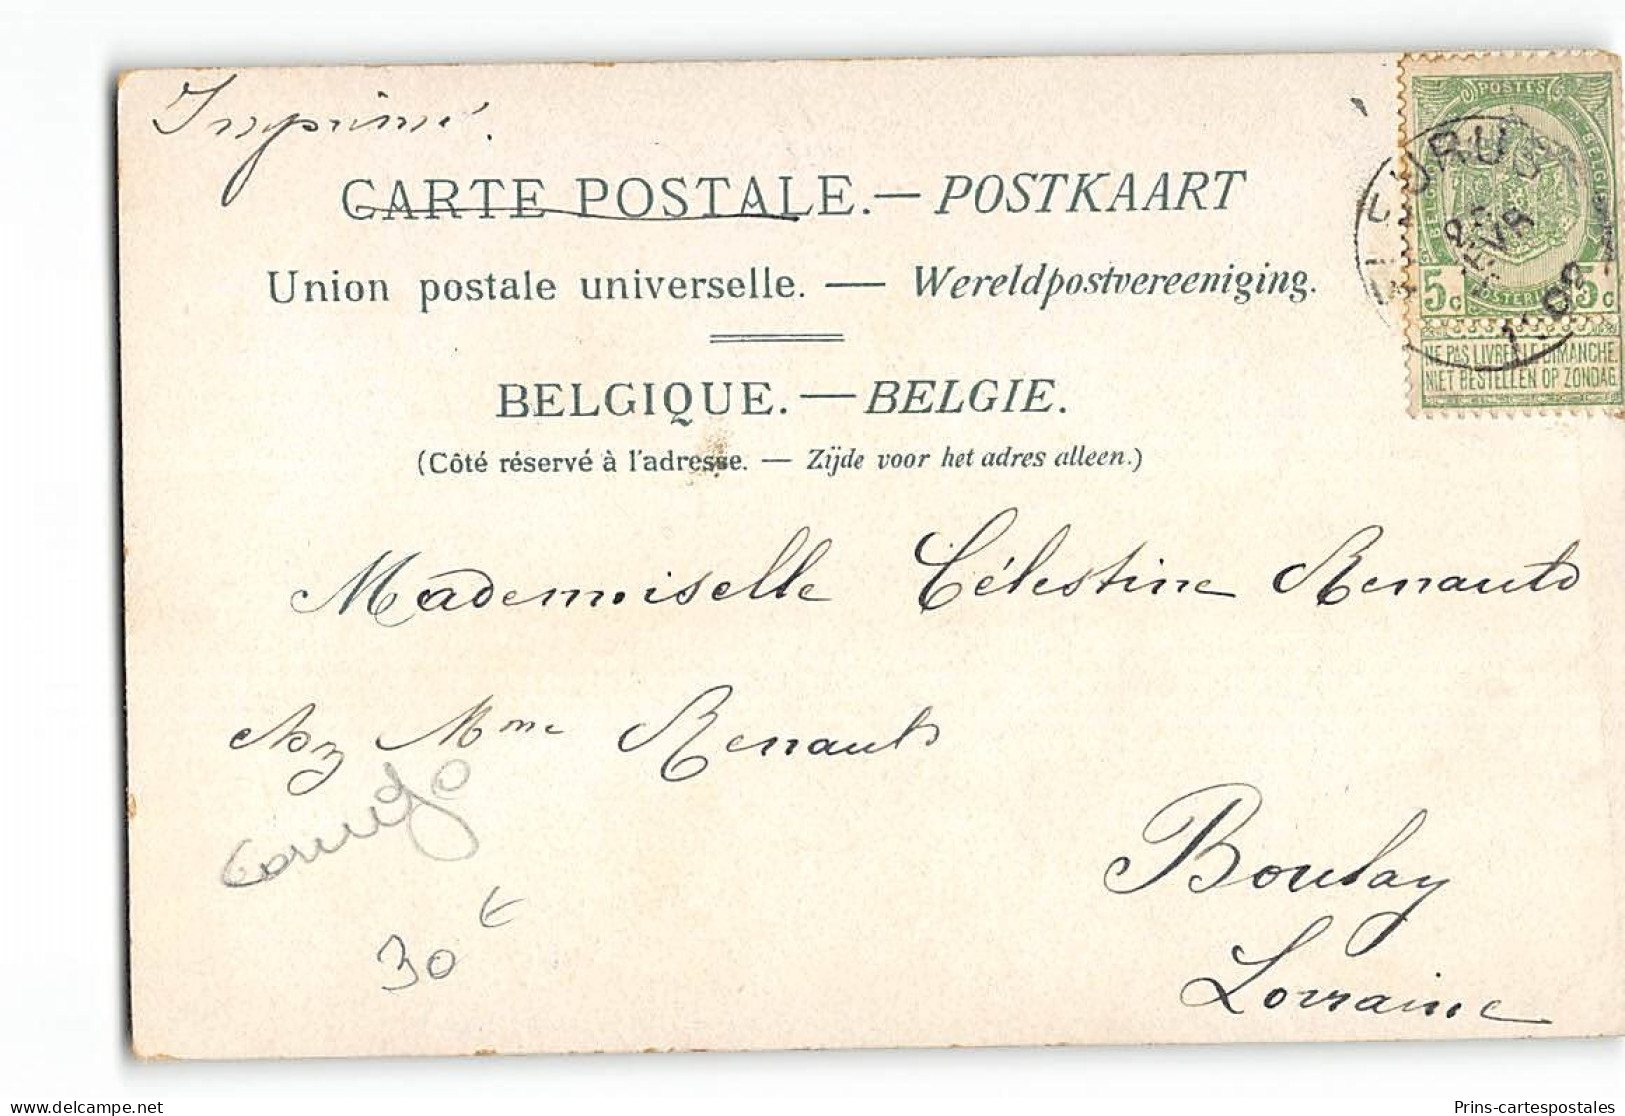 Imprimé.
CARTE POSTALE. — POSTKAART
Union postale universelle. — Wereldpostvereeniging.
BELGIQUE. — BELGIE.
(Côté réservé à l'adresse. — Zijde voor het adres alleen.)
POSTES
BELGIQUE
BELGIE
5c 5c
NE PAS LIVRER LE DIMANCHE.
NIET BESTELLEN OP ZONDAG
Mademoiselle Célestine Renauld
chez Mme Renauld
Boulay
Lorraine
30 €
Prins-cartespostales
www.delcampe.net